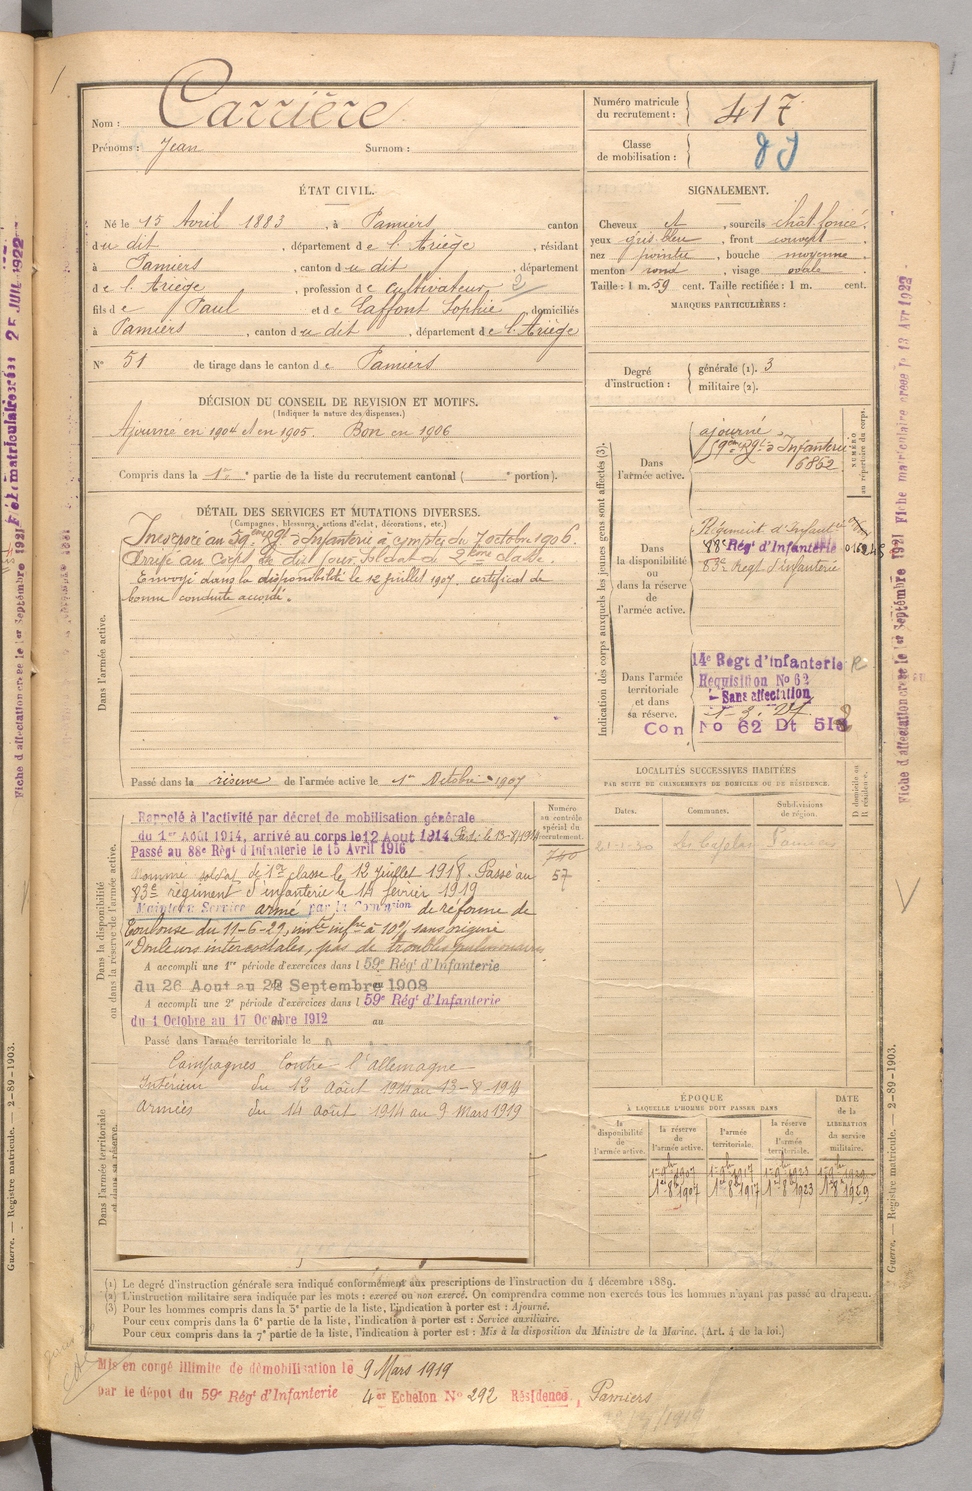 Nom : Carrière
Prénoms : Jean Surnom :
Numéro matricule du recrutement : 417
Classe de mobilisation :
ÉTAT CIVIL.
Né le 15 Avril 1883, à Pamiers canton
du dit, département de l'Ariège, résidant
à Pamiers, canton du dit, département
de l'Ariège, profession de cultivateur
fils de Paul et de Laffont Sophie domiciliés
à Pamiers, canton du dit, département de l'Ariège
N° 51 de tirage dans le canton de Pamiers
SIGNALEMENT.
Cheveux et, sourcils chât. foncé.
yeux gris-bleu, front couvert
nez pointu, bouche moyenne
menton rond, visage ovale
Taille : 1 m. 59 cent. Taille rectifiée : 1 m. cent.
MARQUES PARTICULIÈRES :
Degré d'instruction : générale (1). 3
militaire (2).
DÉCISION DU CONSEIL DE REVISION ET MOTIFS.
(Indiquer la nature des dispenses.)
Ajourné en 1904 et en 1905. Bon en 1906
Compris dans la 1re partie de la liste du recrutement cantonal ( e portion).
DÉTAIL DES SERVICES ET MUTATIONS DIVERSES.
(Campagnes, blessures, actions d'éclat, décorations, etc.)
Dans l'armée active.
Incorporé au 59ème Rgt d'Infanterie à compter du 7 octobre 1906.
Arrivé au Corps le dit jour, soldat de 2ème classe.
Envoyé dans la disponibilité le 12 juillet 1907, certificat de
bonne conduite accordé.
Passé dans la réserve de l'armée active le 1er Octobre 1907
Indication des corps auxquels les jeunes gens sont affectés (3).
NUMÉRO au répertoire du corps.
Dans l'armée active.
ajourné
59ème Rgt d'Infanterie
6862
Dans la disponibilité ou dans la réserve de l'armée active.
Régiment d'Infant
88e Régt d'Infanterie
83e Regt d'infanterie
Dans l'armée territoriale et dans sa réserve.
14e Regt d'infanterie
Requisition No 62
Sans affectation
Con No 62 Dt 518
LOCALITÉS SUCCESSIVES HABITÉES
PAR SUITE DE CHANGEMENTS DE DOMICILE OU DE RÉSIDENCE.
Dates. Communes. Subdivisions de région. D domicile ou R résidence.
Dans la disponibilité ou dans la réserve de l'armée active.
Numéro au contrôle spécial du recrutement.
740
57
Rappelé à l'activité par décret de mobilisation générale
du 1er Août 1914, arrivé au corps le 12 Aout 1914. Parti le 13-8-1914
Passé au 88e Régt d'Infanterie le 15 Avril 1916
Nommé soldat de 1re classe le 12 juillet 1918. Passé au
83e régiment d'infanterie le 14 février 1919
Maintenu Service armé par la Commission de réforme de
Toulouse du 11-6-29, invté infre à 10% sans origine
"Douleurs intercostales, pas de troubles pulmonaires
A accompli une 1re période d'exercices dans l 59e Régt d'Infanterie
du 26 Aout au 22 Septembre 1908
A accompli une 2e période d'exercices dans l 59e Régt d'Infanterie
du 1 Octobre au 17 Octobre 1912 au
Passé dans l'armée territoriale le
Dans l'armée territoriale et dans sa réserve.
Campagnes Contre l'allemagne
Intérieur du 12 Août 1914 au 13-8-1914
Armées du 14 août 1914 au 9 Mars 1919
ÉPOQUE
À LAQUELLE L'HOMME DOIT PASSER DANS
la disponibilité de l'armée active. la réserve de l'armée active. l'armée territoriale. la réserve de l'armée territoriale. DATE de la LIBERATION du service militaire.
1er 8bre 1907 1er 8bre 1917 1er 8bre 1923 1er 8bre 1929
(1) Le degré d'instruction générale sera indiqué conformément aux prescriptions de l'instruction du 4 décembre 1889.
(2) L'instruction militaire sera indiquée par les mots : exercé ou non exercé. On comprendra comme non exercés tous les hommes n'ayant pas passé au drapeau.
(3) Pour les hommes compris dans la 5e partie de la liste, l'indication à porter est : Ajourné.
Pour ceux compris dans la 6e partie de la liste, l'indication à porter est : Service auxiliaire.
Pour ceux compris dans la 7e partie de la liste, l'indication à porter est : Mis à la disposition du Ministre de la Marine. (Art. 4 de la loi.)
Mis en congé illimité de démobilisation le 9 Mars 1919
par le dépot du 59e Régt d'Infanterie 4er Echelon No 292 Résidence, Pamiers
Guerre. — Registre matricule. — 2-89-1903.
Guerre. — Registre matricule. — 2-89-1903.
Fiche d'affectation créée le 1er Septembre 1921
Fiche matriculaire créée le 13 Avr 1922
Fiche d'affectation créée le 1er Septembre 1921